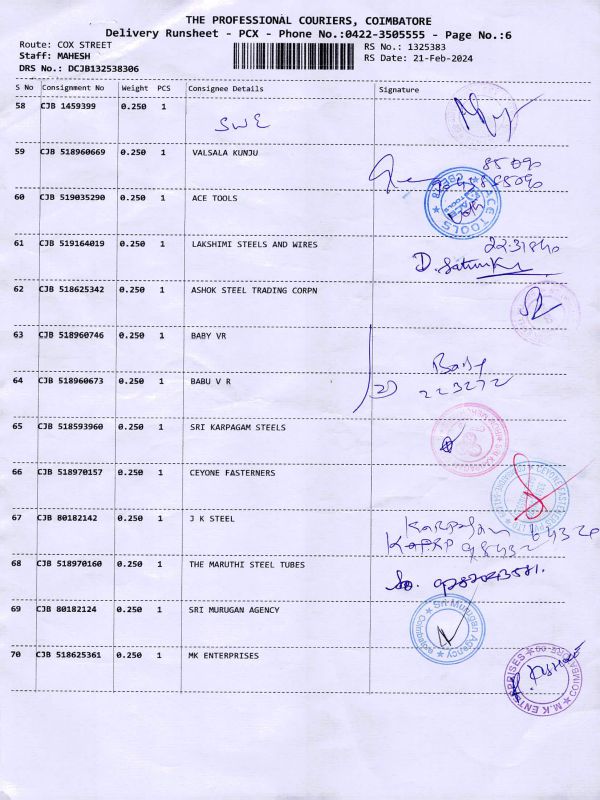 THE PROFESSIONAL COURIERS, COIMBATORE
Delivery Runsheet - PCX - Phone No.:0422-3505555 - Page No.:6
Route: COX STREET
RS No.: 1325383
Staff: MAHESH
RS Date: 21-Feb-2024
DRS No.: DCJB132538306
S No Consignment No Weight PCS Consignee Details Signature
58 CJB 1459399 0.250 1
SWE
59 CJB 518960669 0.250 1 VALSALA KUNJU
60 CJB 519035290 0.250 1 ACE TOOLS
ACE TOOLS
61 CJB 519164019 0.250 1 LAKSHIMI STEELS AND WIRES
62 CJB 518625342 0.250 1 ASHOK STEEL TRADING CORPN
63 CJB 518960746 0.250 1 BABY VR
64 CJB 518960673 0.250 1 BABU V R
223272
65 CJB 518593960 0.250 1 SRI KARPAGAM STEELS
66 CJB 518970157 0.250 1 CEYONE FASTERNERS
67 CJB 80182142 0.250 1 J K STEEL
68 CJB 518970160 0.250 1 THE MARUTHI STEEL TUBES
69 CJB 80182124 0.250 1 SRI MURUGAN AGENCY
Sri Murugan Agency
70 CJB 518625361 0.250 1 MK ENTERPRISES
M.K ENTERPRISES